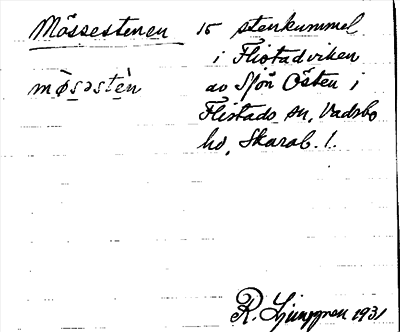 Mössestenen 15 stenkummel
i Flistadviken
mø̀səstèn av Sjön Östen i
Flistads sn, Vadsbo
hd, Skarab. l.
R. Ljunggren 1931